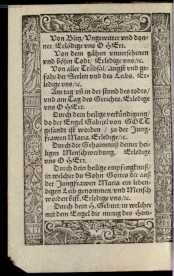 Von Blitz / Ungewitter vnd don-
ner Erlödige vns O HErr.
Von dem gähen vnuersehenen
vnd bösen Todt / Erledige vns /rc.
Von aller Trübsal / angst vnd ge-
fahr der Seelen vnd des Leibs. Er-
ledige vns /rc.
Am tag vñ in der stund des todes /
vnd am Tag des Gerichts. Erledige
vns O HErr.
Durch dein heilige verkündigung /
da der Engel Gabriel von GOTT
gesandt ist worden / zu der Jung-
frawen Maria. Erledige /rc.
Durch die Gehaimnuß deiner hei-
ligen Menschwerdung. Erledige
vns O HErr.
Durch dein heilige empfengknuß /
in welcher du Sohn Gottes dir auß
der Jungfrawen Maria ein leben-
digen Leib genommen vnd Mensch
worden bist. Erledige vns /rc.
Durch dein H. Geburt in welcher
mit dem Engel die meng der Him-